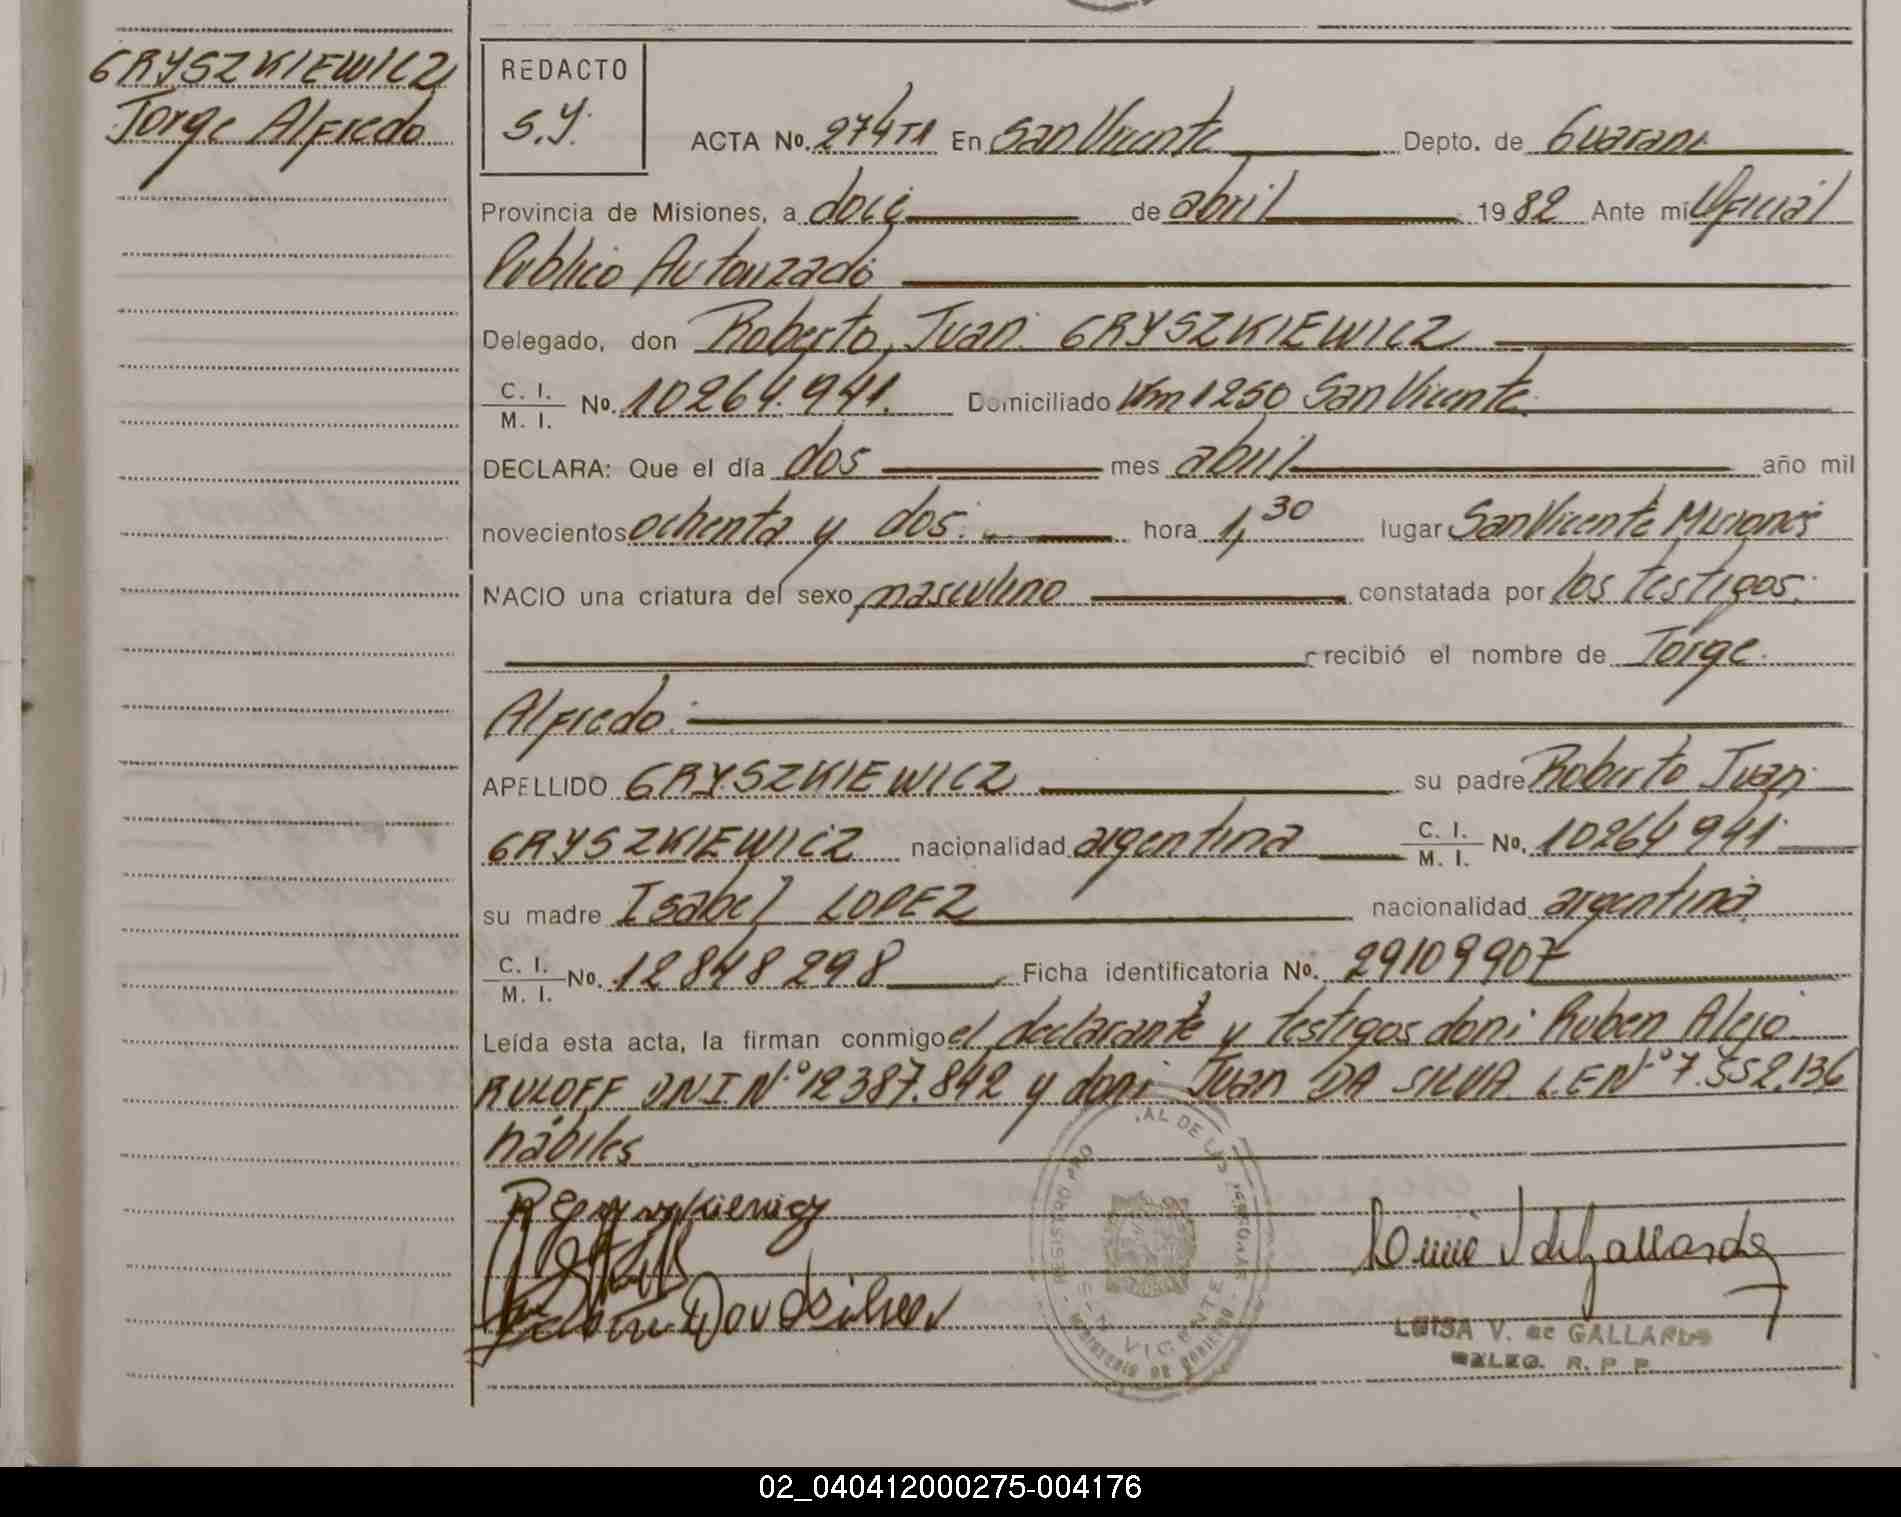 GRYSZKIEWICZ
Jorge Alfredo
REDACTO
S.Y.
ACTA No. 274 T1 En San Vicente Depto. de Guarani
Provincia de Misiones, a doce de abril 1982 Ante mi Oficial
Publico Autorizado
Delegado, don Roberto Juan GRYSZKIEWICZ
C. I. M. I. No. 10264.941. Domiciliado Km 1250 San Vicente
DECLARA: Que el día dos mes abril año mil
novecientos ochenta y dos. hora 1,30 lugar San Vicente Misiones
NACIO una criatura del sexo masculino constatada por los testigos.
recibió el nombre de Jorge
Alfredo.
APELLIDO GRYSZKIEWICZ su padre Roberto Juan
GRYSZKIEWICZ nacionalidad argentina C. I. M. I. No. 10264941
su madre Isabel LOPEZ nacionalidad argentina
C. I. M. I. No. 12848298 Ficha identificatoria No. 29109907
Leída esta acta, la firman conmigo el declarante y testigos don: Ruben Alejo
RULOFF DNI Nº 12387.842 y don: Juan DA SILVA LE Nº 7.552.136
hábiles
REGISTRO PRO AL DE LAS PERSONAS
SAN VICENTE
MINISTERIO DE GOBIERNO
LUISA V. de GALLARDO
DELEG. R. P. P.
02_040412000275-004176